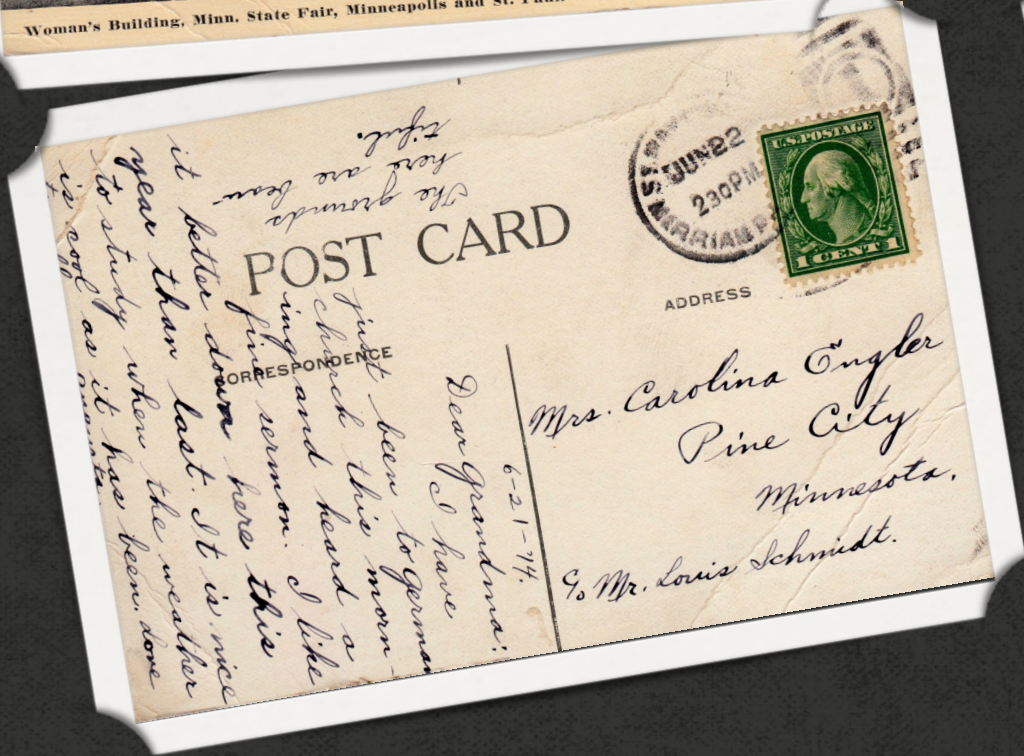 Woman's Building, Minn. State Fair, Minneapolis and St. Paul.
POST CARD
CORRESPONDENCE
ADDRESS
JUN 22
2 30 PM
MERRIAM P
U.S. POSTAGE
1 CENT 1
Mrs. Carolina Engler
Pine City
Minnesota.
c/o Mr. Louis Schmidt.
6-21-14.
Dear Grandma:
I have
just been to German
church this morn-
ing and heard a
fine sermon. I like
it better down here this
year than last. It is nice
to study when the weather
is cool as it has been. Love
The grounds
here are beau
tiful.